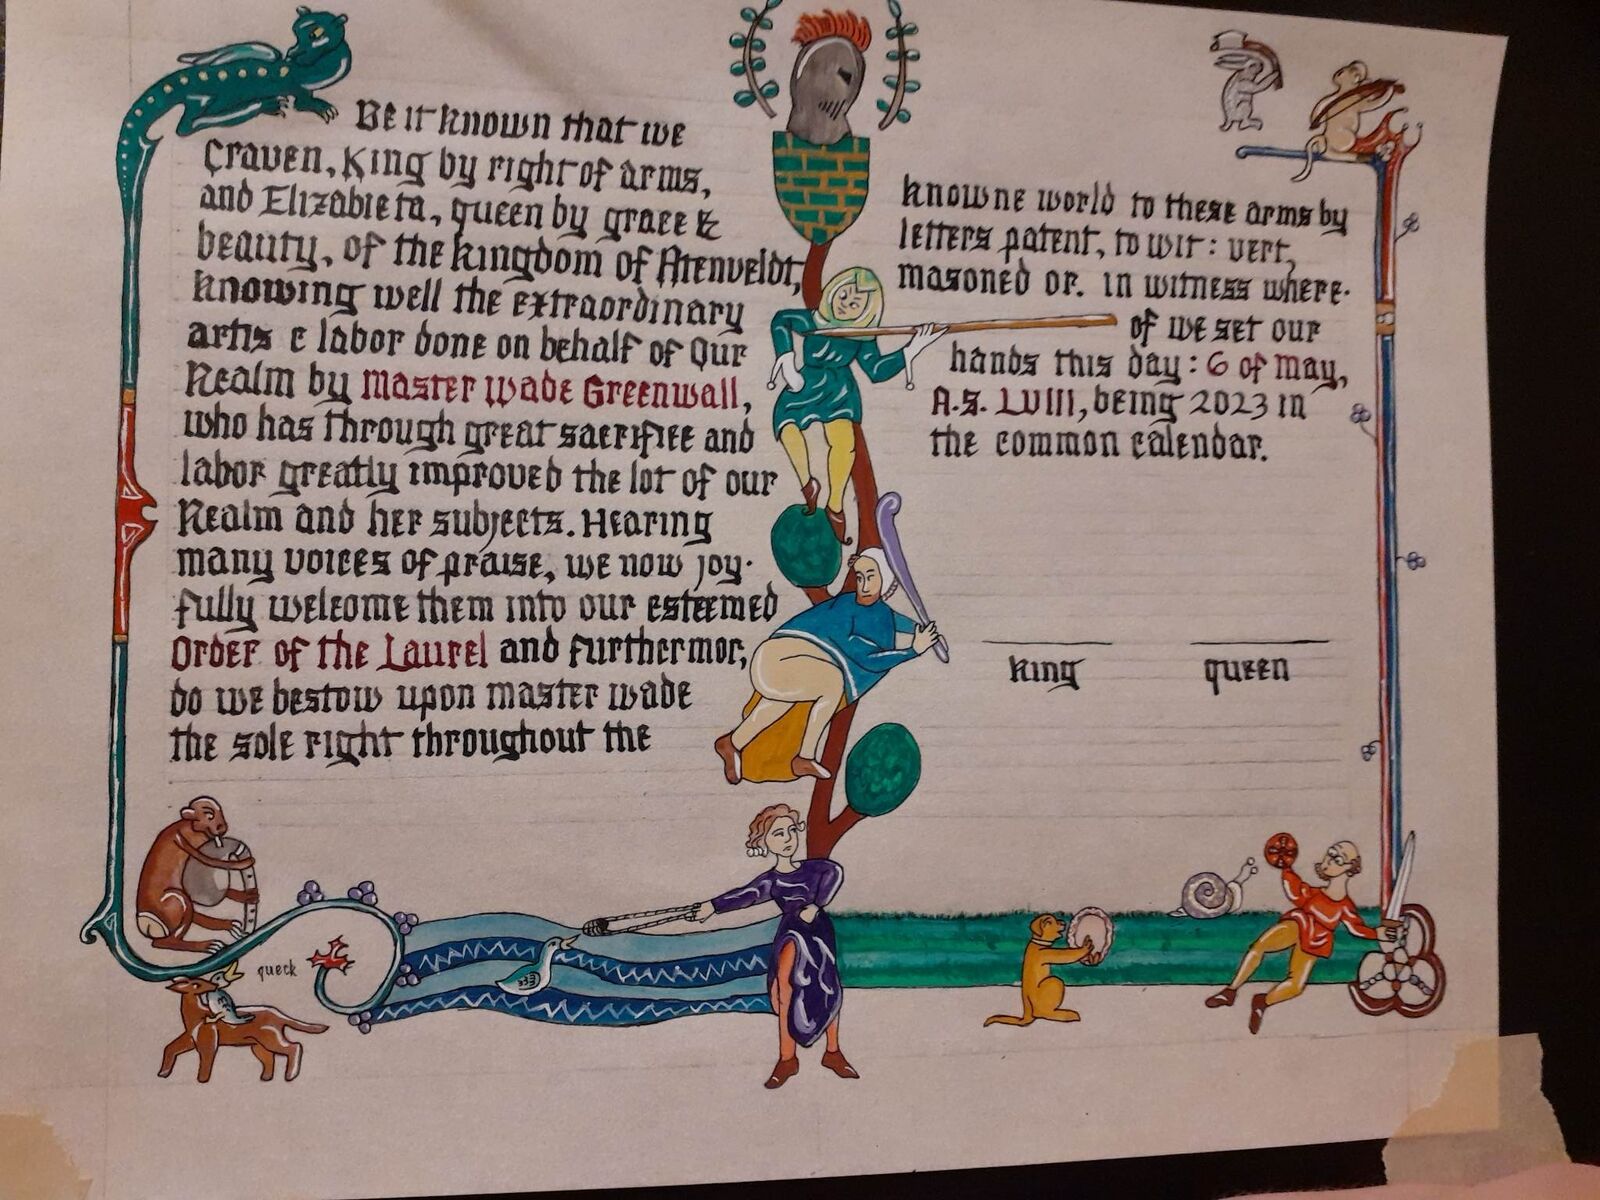 Be it known that we
Craven, King by right of arms,
and Elizabieta, queen by grace &
beauty, of the kingdom of Atenveldt,
knowing well the extraordinary
artis & labor done on behalf of Our
Realm by Master Wade Greenwall,
who has through great sacrifice and
labor greatly improved the lot of our
Realm and her subjects. Hearing
many voices of praise, we now joy-
fully welcome them into our esteemed
Order of the Laurel and furthermor,
do we bestow upon master wade
the sole right throughout the
knowne world to these arms by
letters patent, to wit: vert,
masoned or. in witness where-
of we set our
hands this day: 6 of may,
A.S. LVIII, being 2023 in
the common calendar.
king queen
queck